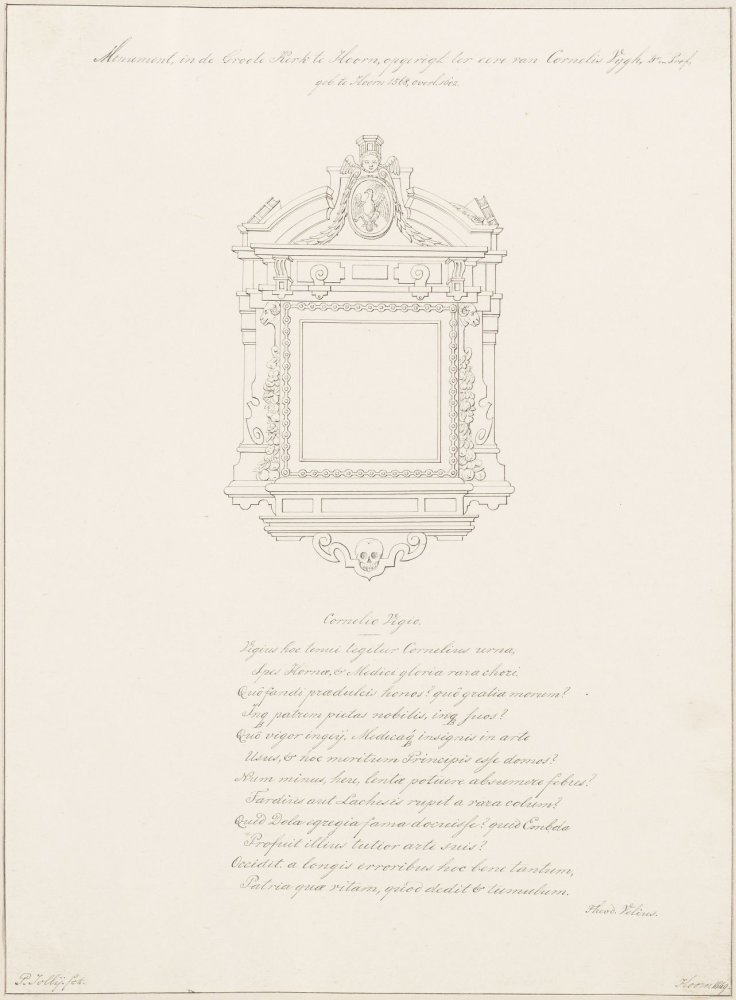 Monument, in de Groote Kerk te Hoorn, opgerigt ter eere van Cornelis Vygh, Dr en Prof,
geb. te Hoorn 1568, overl. 1602.
Cornelio Vigio.
Vigius hoc tenui tegitur Cornelius urna,
Spes Hornæ, & Medici gloria rara chori.
Quò fandi prædulcis honos? quò gratia morum?
Inq patrem pietas nobilis, inq suos?
Quò vigor ingeij, Medicaq insignis in arte
Usus, & hoc meritum Principis esse domos?
Num minus, heu, lentæ potuere absumere febres?
Tardius aut Lachesis rupit a rara colum?
Quid Dola egregia fama docuisse? quid
Profuit illius tutior arte suis?
Occidit. a longis erroribus hoc bene tantum,
Patria quæ vitam, quod dedit & tumulum.
Theod. Velius.
P. Jollij. fct.
Hoorn 1849.